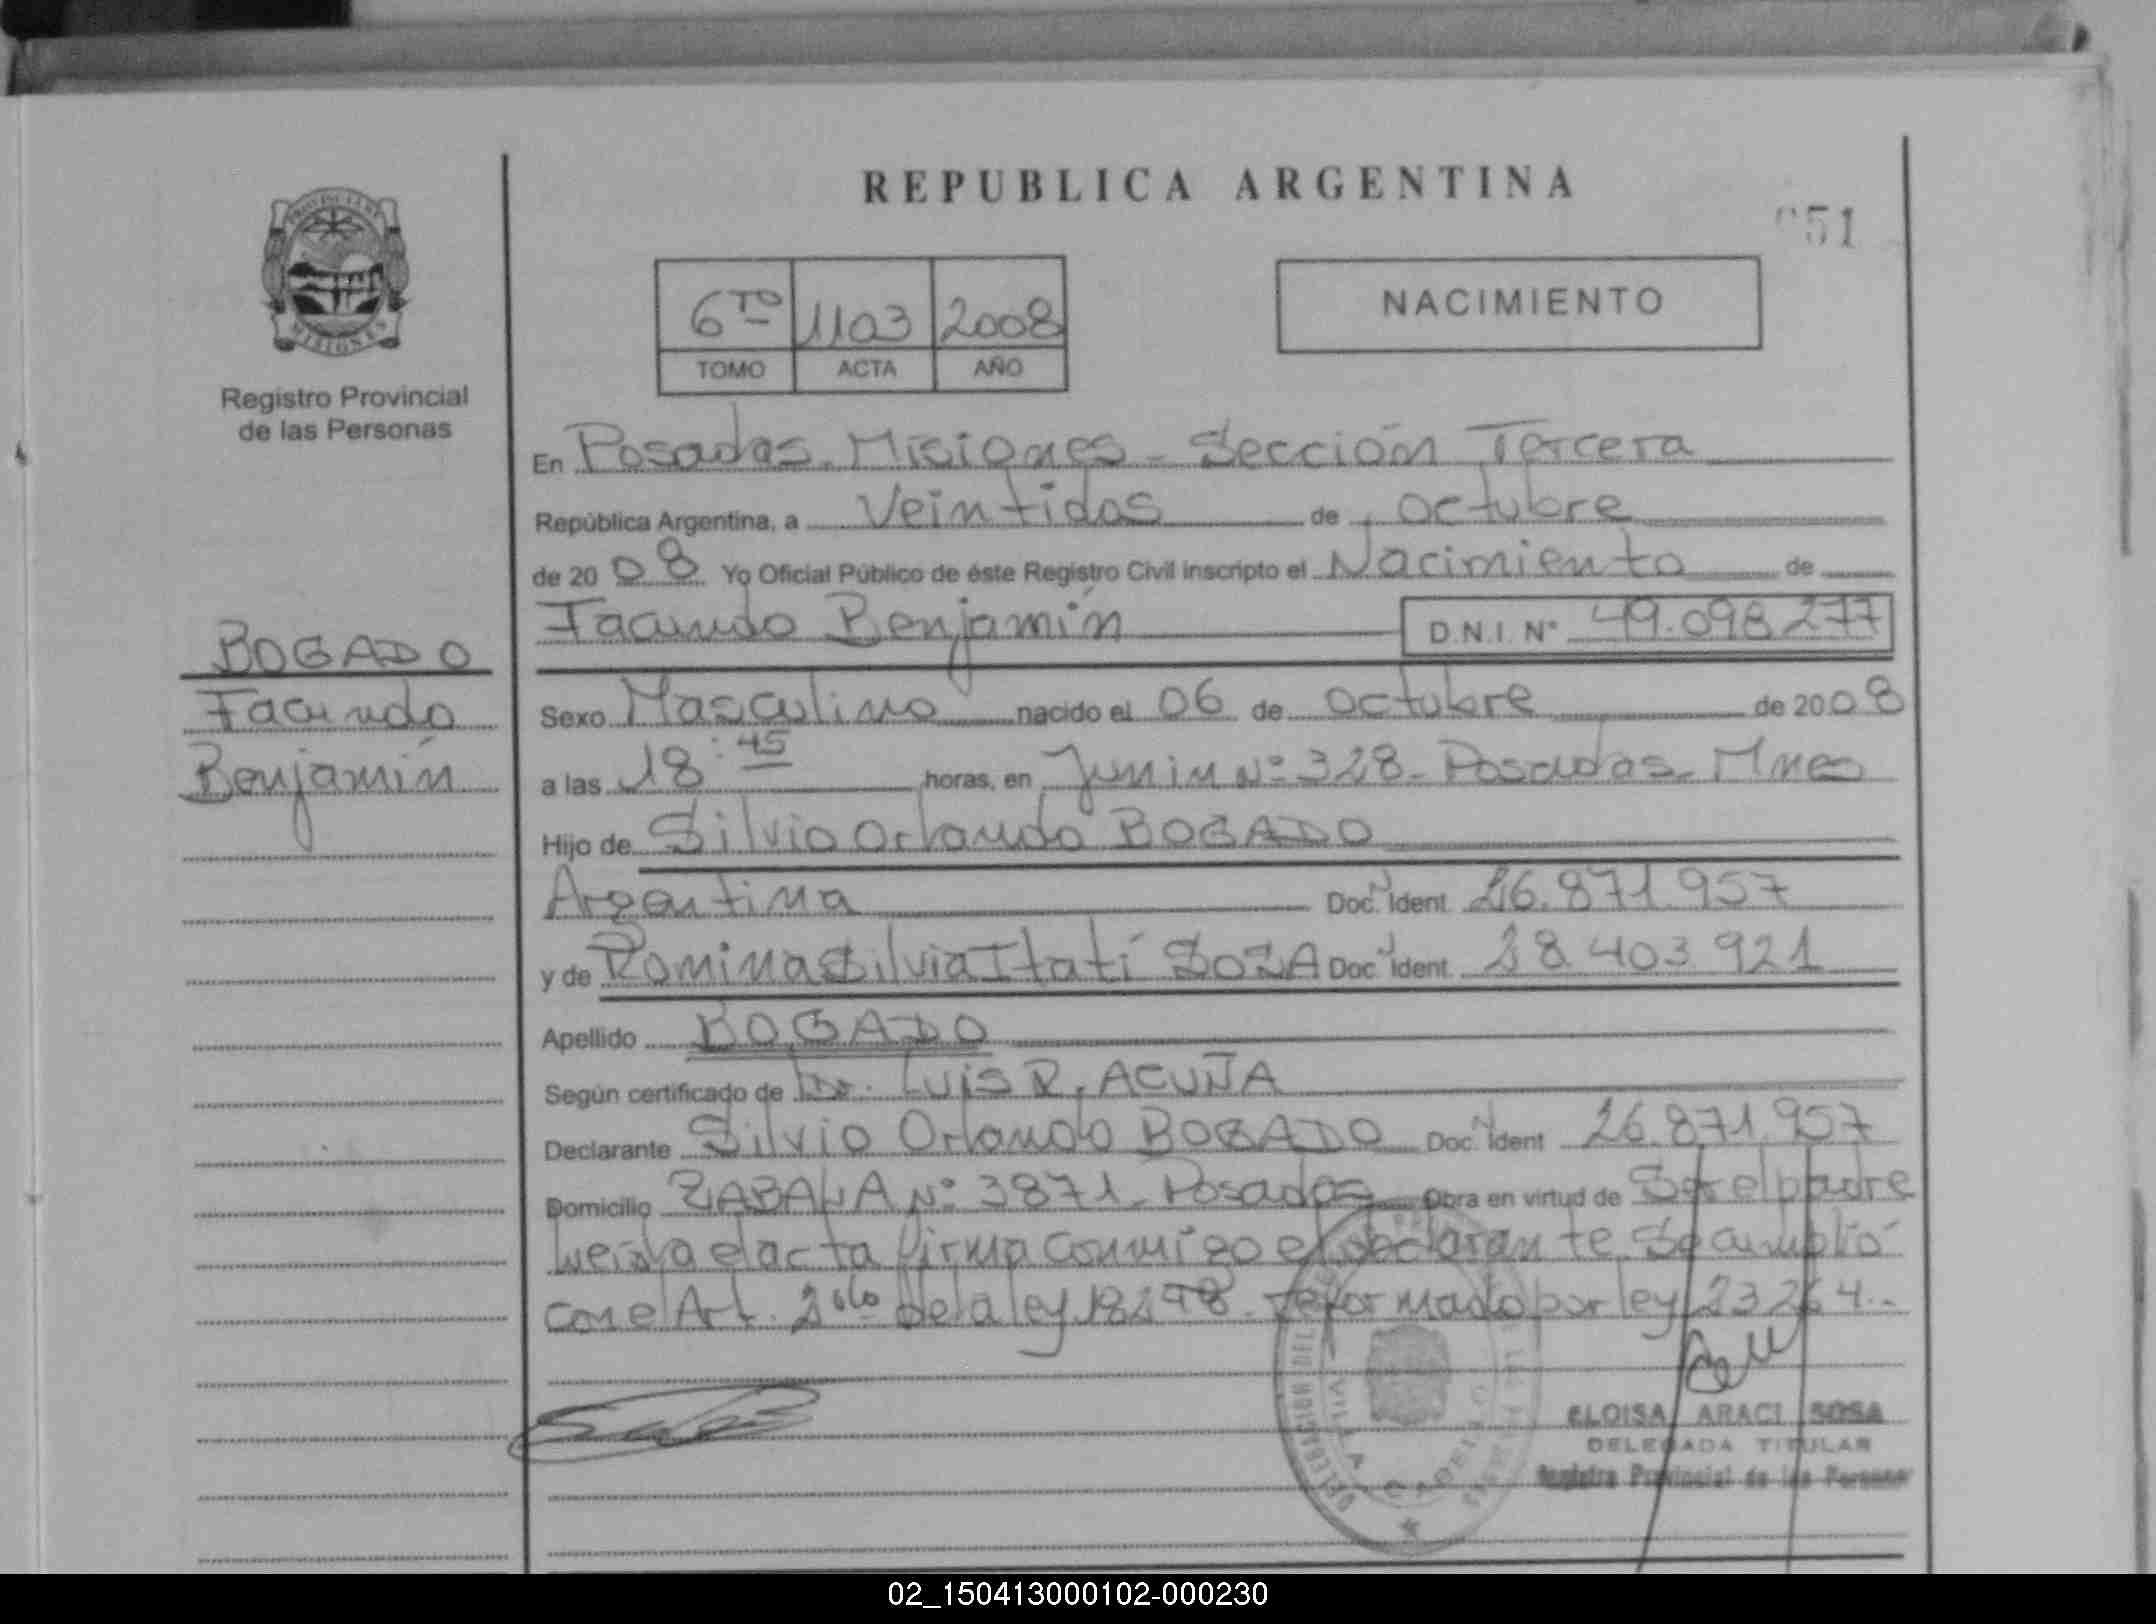 REPUBLICA ARGENTINA
051
6TO 1103 2008
TOMO ACTA AÑO
NACIMIENTO
MISIONES
Registro Provincial
de las Personas
BOGADO
Facundo
Benjamín
En Posadas. Misiones - Sección Tercera
República Argentina, a Veintidos de octubre
de 2008 Yo Oficial Público de éste Registro Civil inscripto el Nacimiento de
Facundo Benjamín D.N.I. Nº 49.098.277
Sexo Masculino nacido el 06 de octubre de 2008
a las 18:45 horas, en Junin Nº 328- Posadas- Mnes
Hijo de Silvio Orlando BOGADO
Argentina Doc. Ident. 26.871.957
y de Romina Silvia Itatí SOZA Doc. Ident. 28.403.921
Apellido BOGADO
Según certificado de Dr. Luis R. ACUÑA
Declarante Silvio Orlando BOGADO Doc. Ident 26.871.957
Domicilio ZABALA Nº 3871- Posadas Obra en virtud de Ser el padre
Leida el acta firma conmigo el declarante Se cumplió
con el Art. 2do de la ley 18298 reformado por ley 23264.-
ELOISA ARACI SOSA
DELEGADA TITULAR
Registro Provincial de las Personas
02_150413000102-000230